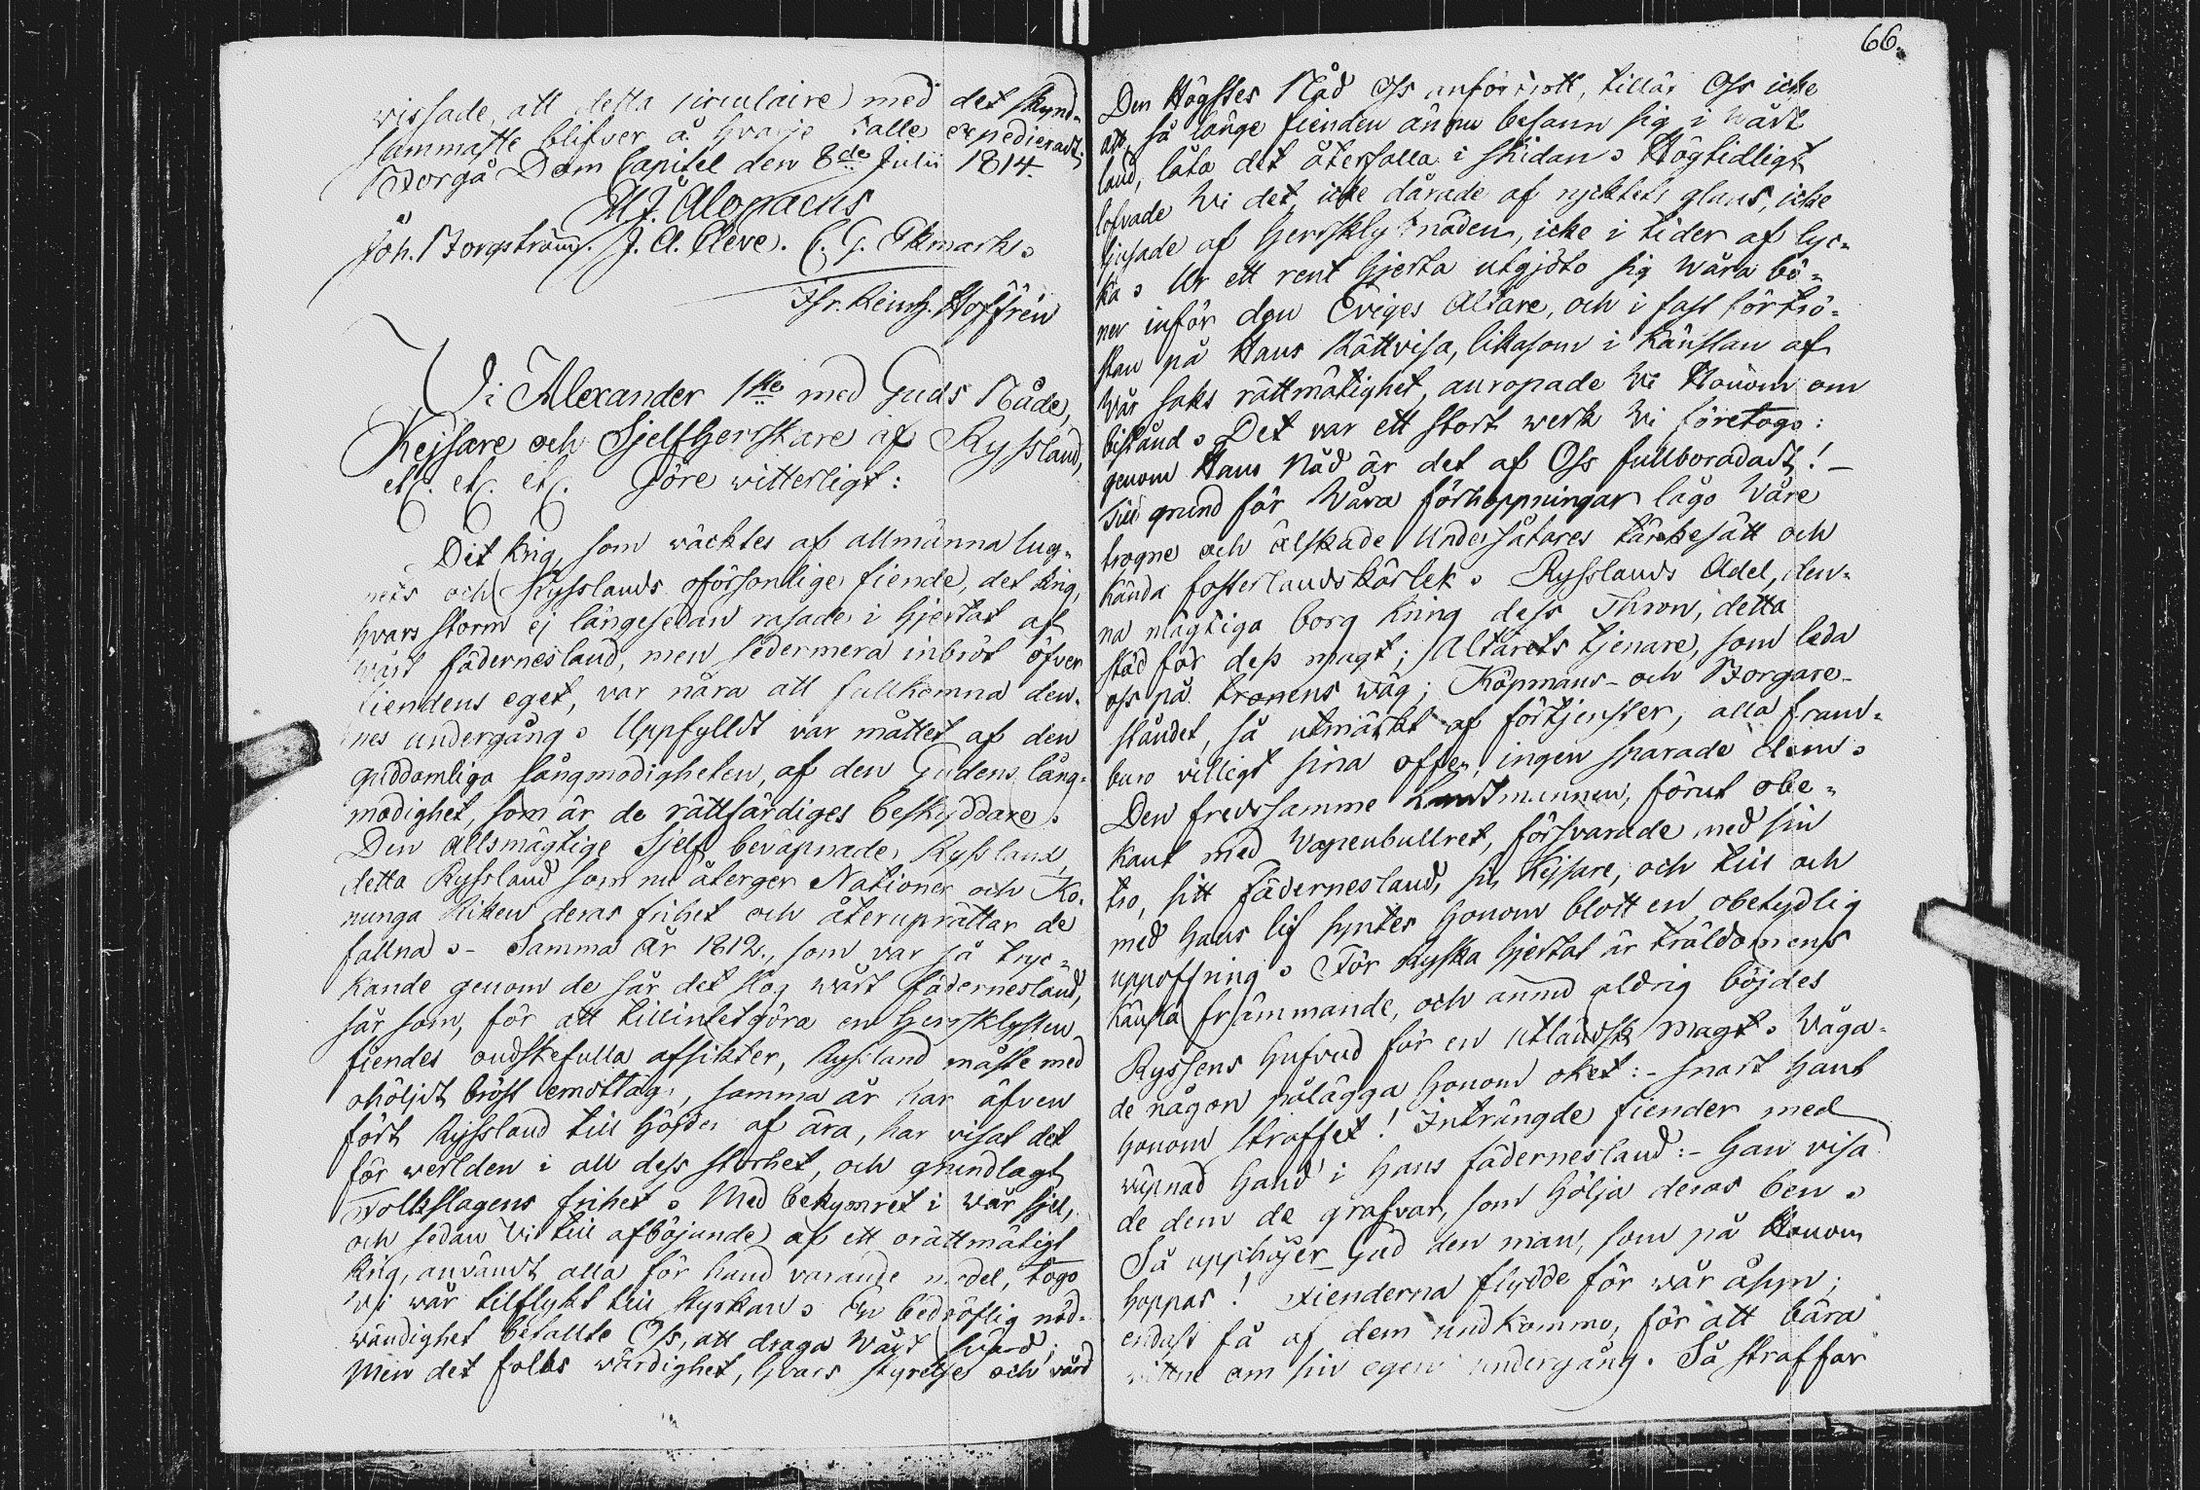 vissade, att detta circulaire med det skynd-
sammaste blifver å hvarje ställe expedieradt;
Borgå Dom Capitel den 8de Julii 1814.
M J. Alopaeus
Joh. Borgström. J. A. Cleve. C. G. Ekmark.
Fr. Reinh. Hoffrén
Vi Alexander 1ste med Guds Nåde,
Kejsare och Sjelfherrskare af Ryssland,
etc. etc. etc. Göre witterligt:
Det krig, som väcktes af allmänna lug-
nets och Rysslands oförsonlige fiende, det krig,
hvars storm ej längesedan rasade i hjertat af
wårt fädernesland, men sedermera inbröt öfver
fiendens eget, var nära att fullkomna den-
nes undergång. Uppfylldt var måttet af den
guddomliga långmodigheten, af den Gudens lång-
modighet, som är de rättfärdiges beskyddare.
Den allsmägtige Sjelf beväpnade Ryssland,
detta Ryssland som nu återger Nationer och Ko-
nunga Riken deras frihet och återupprättar de
fallna. - Samma år 1812., som var så tryc-
kande genom de sår det slog wårt fädernesland,
sår som, för att tillintetgöra en herrsklysten
fiendes ondskefulla afsikter, Ryssland måste med
ohöljdt bröst emottaga, samma år har äfven
fört Ryssland till höjden af ära, har visat det
för werlden i all dess storhet, och grundlagt
Folkslagens frihet. Med bekymret i wår själ,
och sedan Vi till afböjande af ett orättmätigt
krig, användt alla för hand varande medel, togo
Vi wår tilflykt till styrkan. En bedröflig nöd-
wändighet befallte Oss, att draga Wårt swärd;
Men det folks wärdighet, hvars styrelse och vård
66.
Den Högstes Nåd Oss anförtrott, tillät Oss icke
att, så länge fienden ännu befann sig i wårt
land, låta det återfalla i skidan. Högtidligt
lofvade Vi det, icke dårade af ryktets glans, icke
tjusade af herrsklystnaden, icke i tider af lyc-
ka. Ur ett rent hjerta utgjöto sig wåra bö-
ner inför den Eviges Altare, och i fast förtrö-
stan på Hans Rättvisa, likasom i känslan af
Wår saks rättmätighet, anropade Vi Honom om
bistånd. Det var ett stort werk Vi företogo:
genom Hans Nåd är det af Oss fullbordadt! -
Till grund för Wåra förhoppningar lågo Wåre
trogne och älskade Undersåtares tänkesätt och
kända fosterlandskärlek. Rysslands Adel, den-
na mägtiga borg kring dess Thron, detta
stöd för dess magt; Altarets tjenare, som leda
oss på trones wäg; Köpmans- och Borgare-
ståndet, så utmärkt af förtjenster, alla fram-
buro villigt sina offer, ingen sparade dem.
Den fredssamme Landtmannen, förut obe-
kant med Vapenbullret, försvarade med sin
tro, sitt fädernesland, sin Kejsare, och till och
med hans lif syntes honom blott en obetydlig
uppoffring. För Ryska hjertat är träldomens
känsla främmande, och ännu aldrig böjdes
Ryssens hufvud för en utländsk magt. Våga-
de någon pålägga honom oket: - snart hant
honom straffet! Inträngde fiender med
wäpnad hand i hans fädernesland: - han visa
de dem de grafvar, som hölja deras ben.
Så upphöjer Gud den man, som på Honom
hoppas! Fienderna flydde för wår åsyn;
endast få af dem undkommo, för att bära
vittne om sin egen undergång. Så straffar